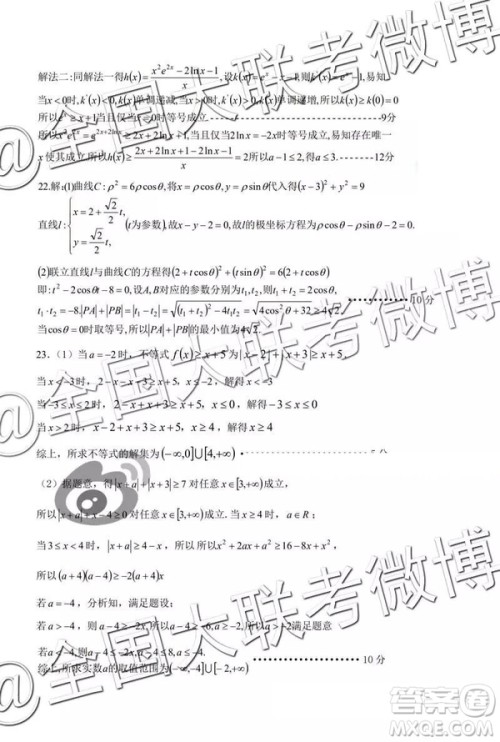 解法二:同解法一得h(x)=(x²e^{2x}-2lnx-1)/x,设k(x)=e^x-x-1,则k'(x)=e^x-1,易知,
当x<0时,k'(x)<0,k(x)单调递减,当x>0时,k'(x)>0,k(x)单调递增,所以k(x)≥k(0)=0
所以e^x≥x+1当且仅当x=0时等号成立 9分
所以x²e^{2x}=e^{2x+2lnx}≥2x+2lnx+1,当且仅当2lnx=-2x时等号成立,易知存在唯一
x使其成立所以h(x)≥(2x+2lnx+1-2lnx-1)/x=2所以a-1≤2,得a≤3.-------12分
22.解:(1)曲线C:ρ²=6ρcosθ,将x=ρcosθ,y=ρsinθ代入得(x-3)²+y²=9
直线l:{x=2+(√2/2)t, y=(√2/2)t, (t为参数).故x-y-2=0,故l的极坐标方程为ρcosθ-ρsinθ-2=0.
(2)联立直线l与曲线C的方程得(2+tcosθ)²+(tsinθ)²=6(2+tcosθ)
即:t²-2cosθt-8=0,设A,B对应的参数分别为t₁,t₂,则t₁+t₂=2cosθ,
t₁·t₂=-8.|PA|+|PB|=|t₁-t₂|=√((t₁+t₂)²-4t₁t₂)=√(4cos²θ+32)≥4√2. 10分
当cosθ=0时取等号,所以|PA|+|PB|的最小值为4√2.
23.(1)当a=-2时,不等式f(x)≥x+5为|x-2|+|x+3|≥x+5,
当x<-3时,2-x-x-3≥x+5,x≤-2,解得x<-3
当-3≤x≤2时,2-x+x+3≥x+5,x≤0,解得-3≤x≤0
当x>2时,x-2+x+3≥x+5,x≥4,解得x≥4
综上,所求不等式的解集为(-∞,0]∪[4,+∞)
(2)据题意,得|x+a|+|x+3|≥7对任意x∈[3,+∞)成立,
所以|x+a|+x-4≥0对任意x∈[3,+∞)成立.当x≥4时,a∈R;
当3≤x<4时,|x+a|≥4-x,所以x²+2ax+a²≥16-8x+x²,
所以(a+4)(a-4)≥-2(a+4)x
若a=-4,分析知,满足题设;
若a>-4,则a-4≥-2x,a-4≥-6,a≥-2,所以a>-2满足题意
若a<-4,则a-4≤-2x,a-4≤-8,a≤-4.
综上,所求实数a的取值范围为(-∞,-4]∪[-2,+∞) 10分
@全国大联考微博
@全国大联考微博
答案圈
MXQE.COM